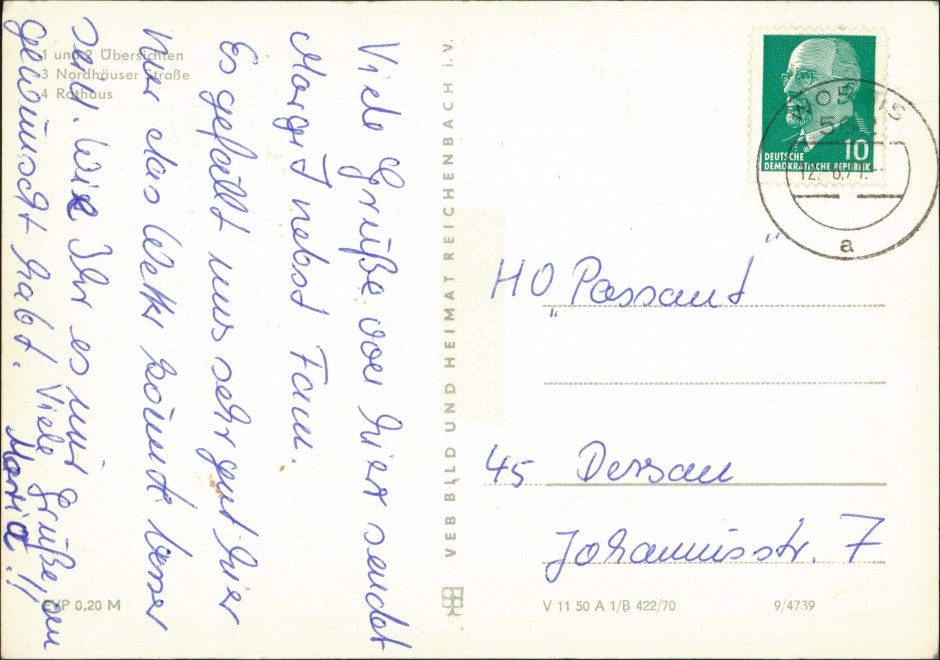 1 und 2 Übersichten
3 Nordhäuser Straße
4 Rathaus
Viele Grüße von hier sendet
Margit nebst Fam.
Es gefällt uns sehr gut hier
Nur das Wetter könnte besser
sein. Wie Ihr es mir
gewünscht habt. Viele Grüße an
Maria!!
EVP 0,20 M
VEB BILD UND HEIMAT REICHENBACH i. V.
DEUTSCHE
DEMOKRATISCHE REPUBLIK
10
a
HO „Passant"
45 Dessau
Johannisstr. 7
V 11 50 A 1/B 422/70
9/4739